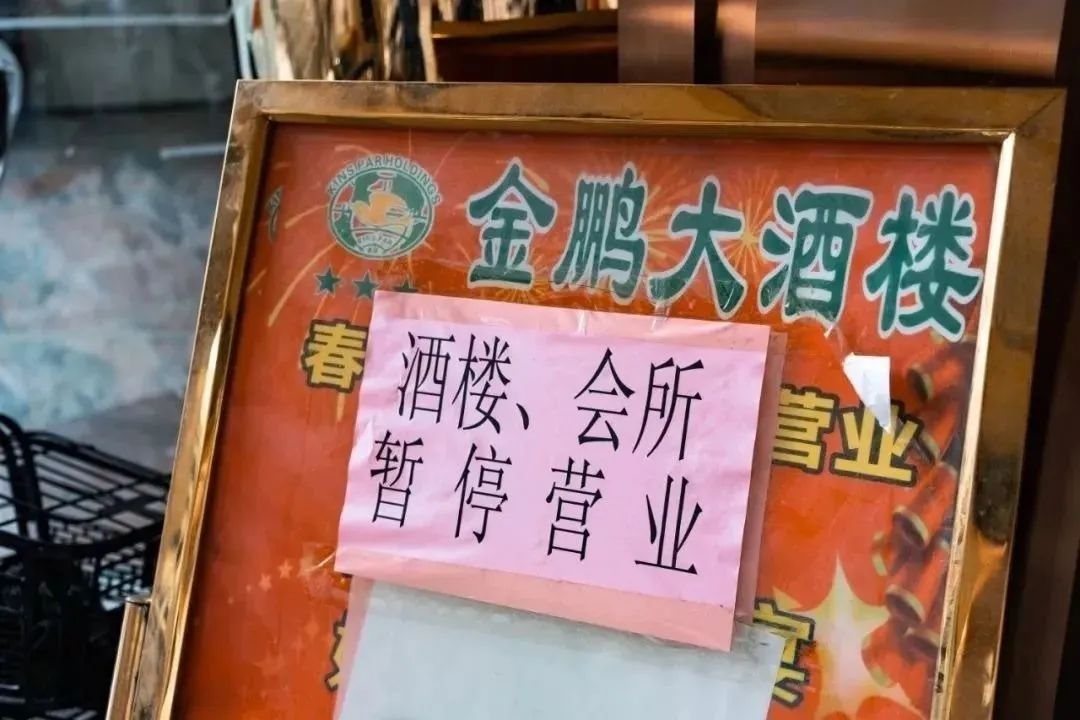 KINSPAR HOLDINGS
金鹏大酒楼
春
营业
酒楼、会所
暂停营业